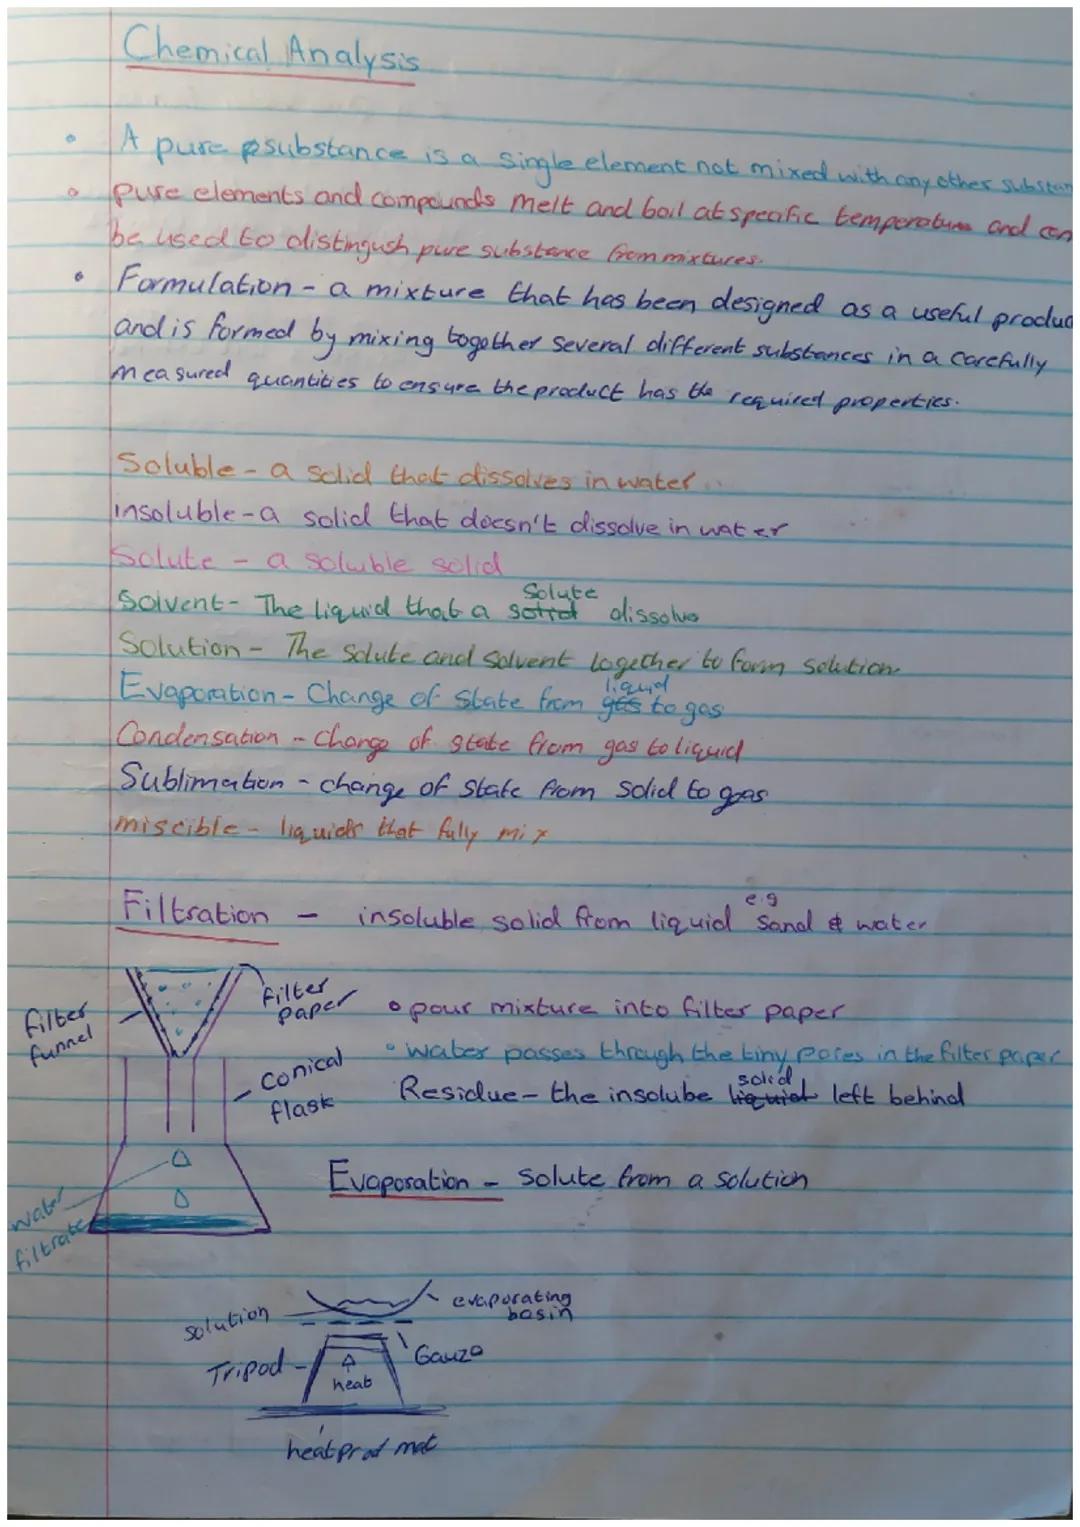 Chemical Analysis
• A pure substance is a single element not mixed with any other substan
• pure elements and compounds melt and boil at specific temperatures and can
be used to distingush pure substance from mixtures.
• Formulation - a mixture that has been designed as a useful produc
and is formed by mixing together several different substances in a carefully
measured quantities to ensure the product has the required properties.
Soluble - a solid that dissolves in water
insoluble - a solid that doesn't dissolve in water
Solute - a soluble solid
Solvent - The liquid that a solute dissolve
Solution - The solute and solvent together to form solution
Evaporation - Change of state from liquid to gas
Condensation - change of state from gas to liquid
Sublimation - change of state from solid to gas
miscible - liquids that fully mix
Filtration - insoluble solid from liquid e.g sand & water
filter
funnel
filter
paper
• pour mixture into filter paper
• water passes through the tiny pores in the filter paper
conical
flask
Residue - the insolube solid left behind
Evaporation - solute from a solution
water
filtrate
solution
evaporating
basin
Tripod
Gauze
heat
heat proof mat